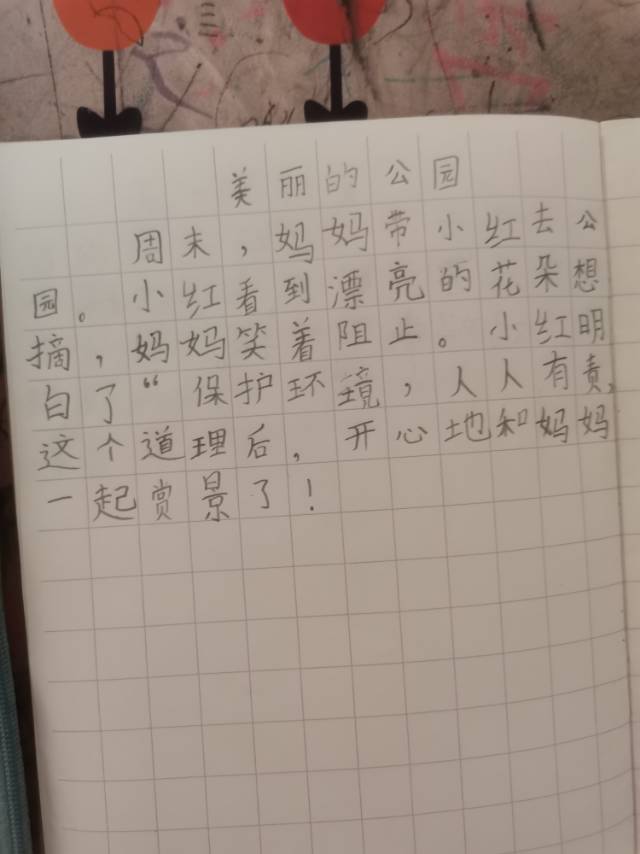 美丽的公园
周末，妈妈带小红去公
园。小红看到漂亮的花朵想
摘，妈妈笑着阻止。小红明
白了“保护环境，人人有责，
这个道理后，开心地和妈妈
一起赏景了！